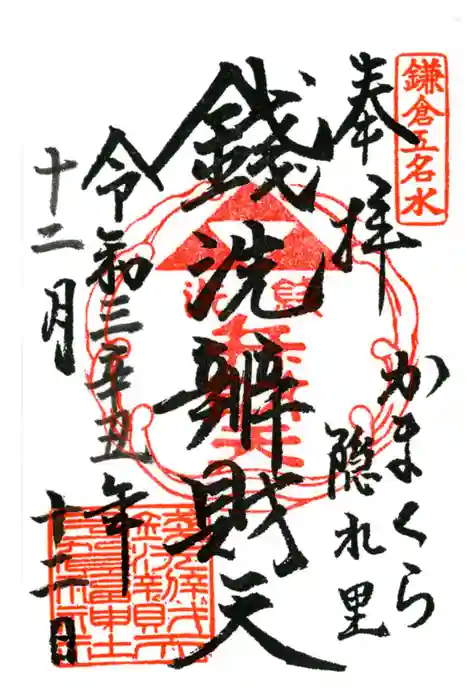 鎌倉五名水
奉拝
かまくら
隠れ里
銭洗辨財天
令和三辛丑年
十二月
十二日